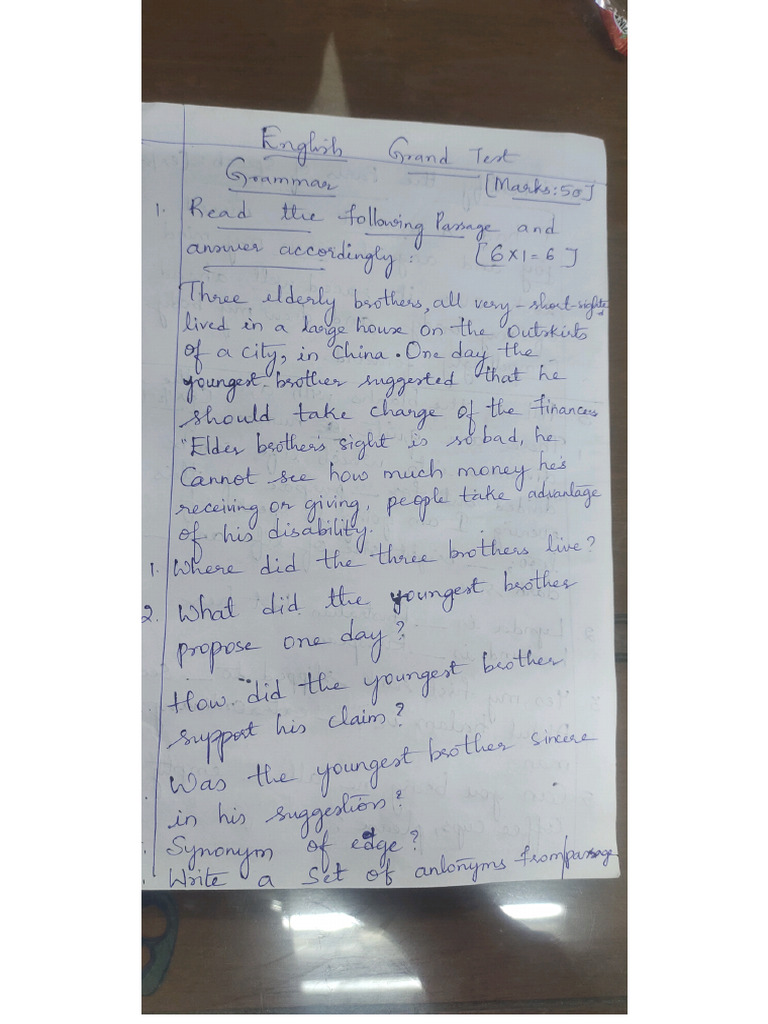 English Grand Test
Grammar [Marks:50]
1. Read the following Passage and
answer accordingly: [6X1=6]
Three elderly brothers, all very-short-sighted
lived in a large house on the outskirts
of a city, in China. One day the
youngest brother suggested that he
should take charge of the finances
"Elder brother's sight is so bad, he
Cannot see how much money he's
receiving or giving, people take advantage
of his disability.
1. Where did the three brothers live?
2. What did the youngest brother
propose one day?
How did the youngest brother
support his claim?
Was the youngest brother sincere
in his suggestion?
Synonym of edge?
Write a Set of antonyms from passage